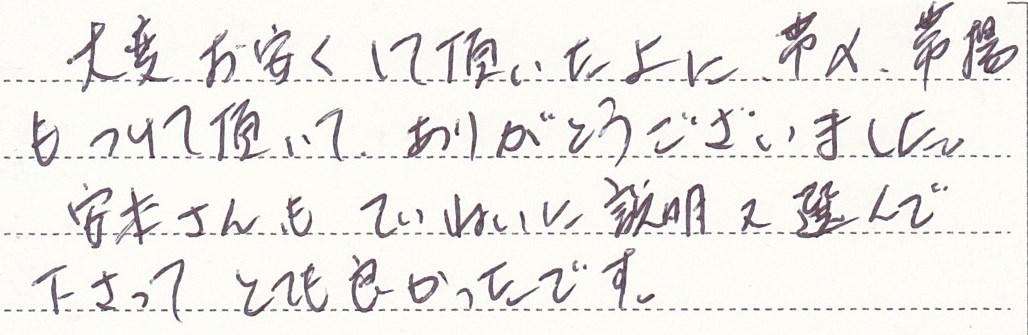 大変お安くして頂いた上に、帯〆、帯揚
もつけて頂いて、ありがとうございました。
安本さんもていねいに説明又選んで
下さってとても良かったです。